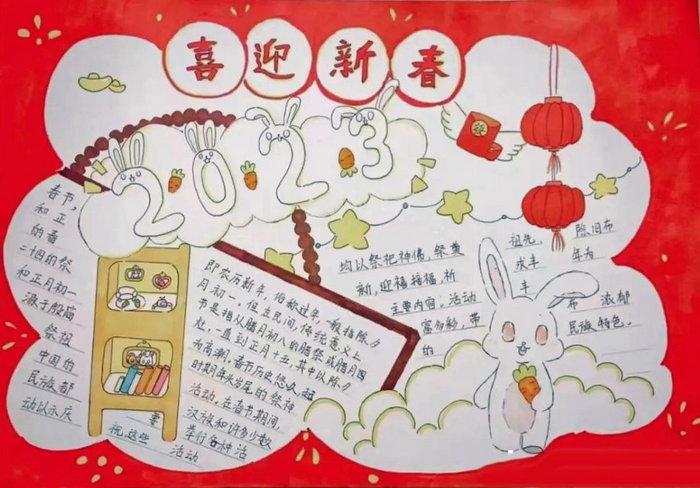 喜迎新春
2023
春节,
和正
的春
二十四的祭
和正月初一
源于殷商
祭祖
中国的
民族都
动以示庆
祝,这些活动
即农历新年,俗称过年,一般指除夕
月初一。但在民间,传统意义上
书是指从腊月初八的腊祭或腊月
处,一直到正月十五,其中以除夕
为高潮。春节历史悠久,起
时期年头岁尾的祭神
活动。在春节期间,
汉族和许多少数
要举行各种活
均以祭祀神佛,祭奠
祖先,
除旧布
新,迎禧接福,祈
成丰
年为
主要内容,活动
丰
富多彩,带
有
浓郁
的
民族特色。